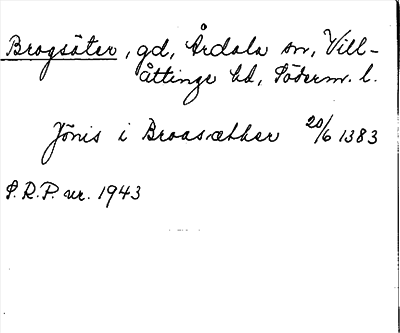 Brogsäter, gd, Årdala sn, Vill-
åttinge hd, Söderm. l.
Jönis i Broasæther 20/6 1383
S.R.P. nr. 1943